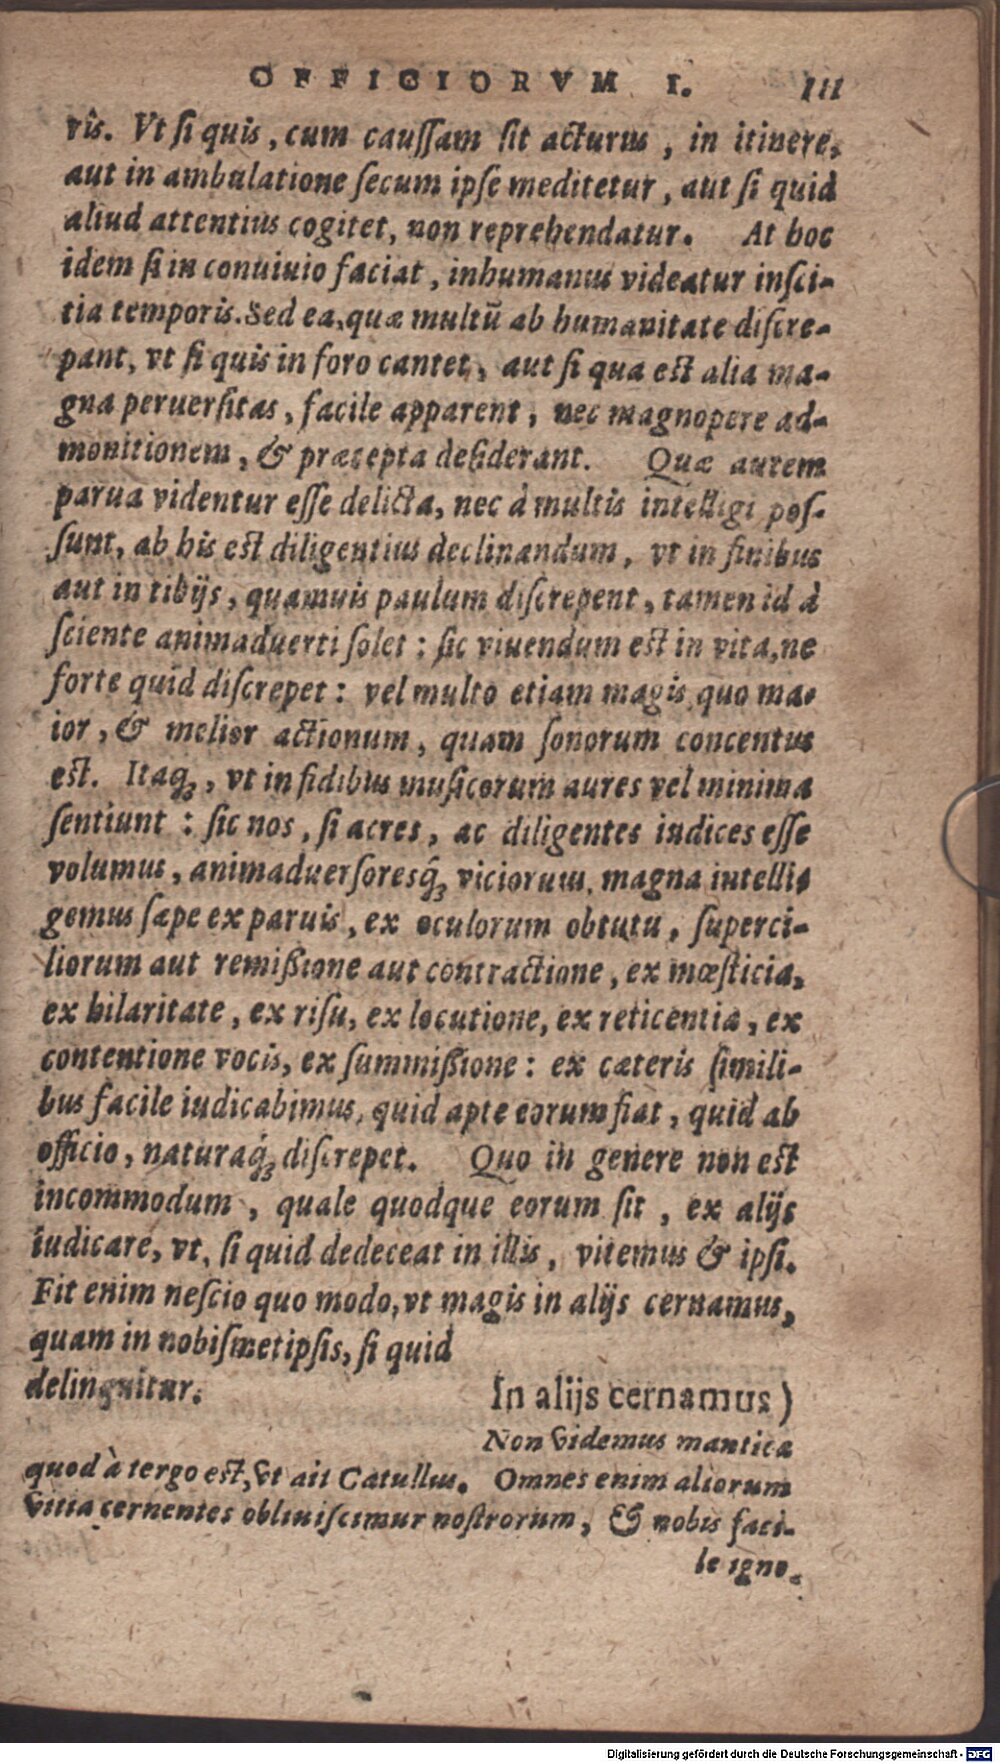 OFFICIORVM I. 111
ris. Vt ſi quis, cum cauſſam ſit acturus, in itinere,
aut in ambulatione ſecum ipſe meditetur, aut ſi quid
aliud attentius cogitet, non reprehendatur. At hoc
idem ſi in conuiuio faciat, inhumanus videatur inſci-
tia temporis. Sed ea, quæ multū ab humanitate diſcre-
pant, vt ſi quis in foro cantet, aut ſi qua eſt alia ma-
gna peruerſitas, facile apparent, nec magnopere ad-
monitionem, & præcepta deſiderant. Quæ autem
parua videntur eſſe delicta, nec à multis intelligi poſ-
ſunt, ab his eſt diligentius declinandum, vt in finibus
aut in tibijs, quamuis paulum diſcrepent, tamen id à
ſciente animaduerti ſolet: ſic viuendum eſt in vita, ne
forte quid diſcrepet: vel multo etiam magis, quo ma-
ior, & melior actionum, quam ſonorum concentus
eſt. Itaq́ꝫ, vt in fidibus muſicorum aures vel minima
ſentiunt: ſic nos, ſi acres, ac diligentes iudices eſſe
volumus, animaduerſoresq́ꝫ viciorum, magna intelli-
gemus ſæpe ex paruis, ex oculorum obtutu, ſuperci-
liorum aut remiſsione aut contractione, ex mœſticia,
ex hilaritate, ex riſu, ex locutione, ex reticentia, ex
contentione vocis, ex ſummiſsione: ex cæteris ſimili-
bus facile iudicabimus, quid apte eorum fiat, quid ab
officio, naturaq́ꝫ diſcrepet. Quo in genere non eſt
incommodum, quale quodque eorum ſit, ex alijs
iudicare, vt, ſi quid dedeceat in illis, vitemus & ipſi.
Fit enim neſcio quo modo, vt magis in alijs cernamus,
quam in nobiſmetipſis, ſi quid
delinquitur. In alijs cernamus)
Non videmus mantica
quod à tergo eſt, vt ait Catullus. Omnes enim aliorum
vitia cernentes obliuiſcimur noſtrorum, & nobis faci-
le igno-
Digitalisierung gefördert durch die Deutsche Forschungsgemeinschaft - DFG